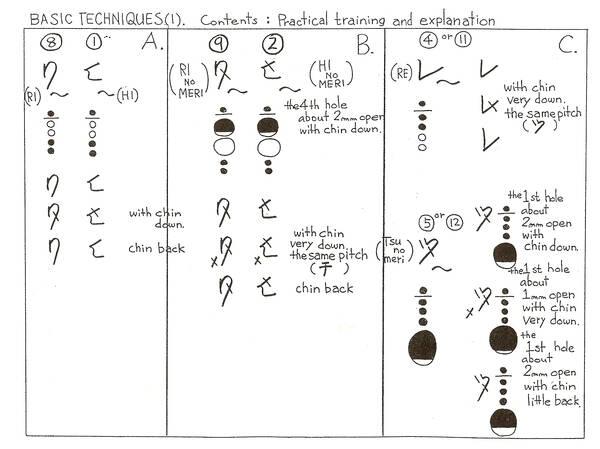 BASIC TECHNIQUES(1). Contents : Practical training and explanation
A.
⑧ ①
リ ヒ
(RI) (HI)
リ ヒ
with chin
down.
リ ヒ
chin back
B.
⑨ ②
(RI
NO
MERI)
(HI
NO
MERI)
the 4th hole
about 2mm open
with chin down.
with chin
very down.
the same pitch
(チ)
chin back
C.
④ or ⑪
(RE) レ レ
with chin
very down.
the same pitch
(ツ)
レ
⑤ or ⑫
(Tsu
no
meri)
ツ
the 1st hole
about
2mm open
with
chin down.
the 1st hole
about
1mm open
with chin
very down.
the
1st hole
about
2mm open
with chin
little back.